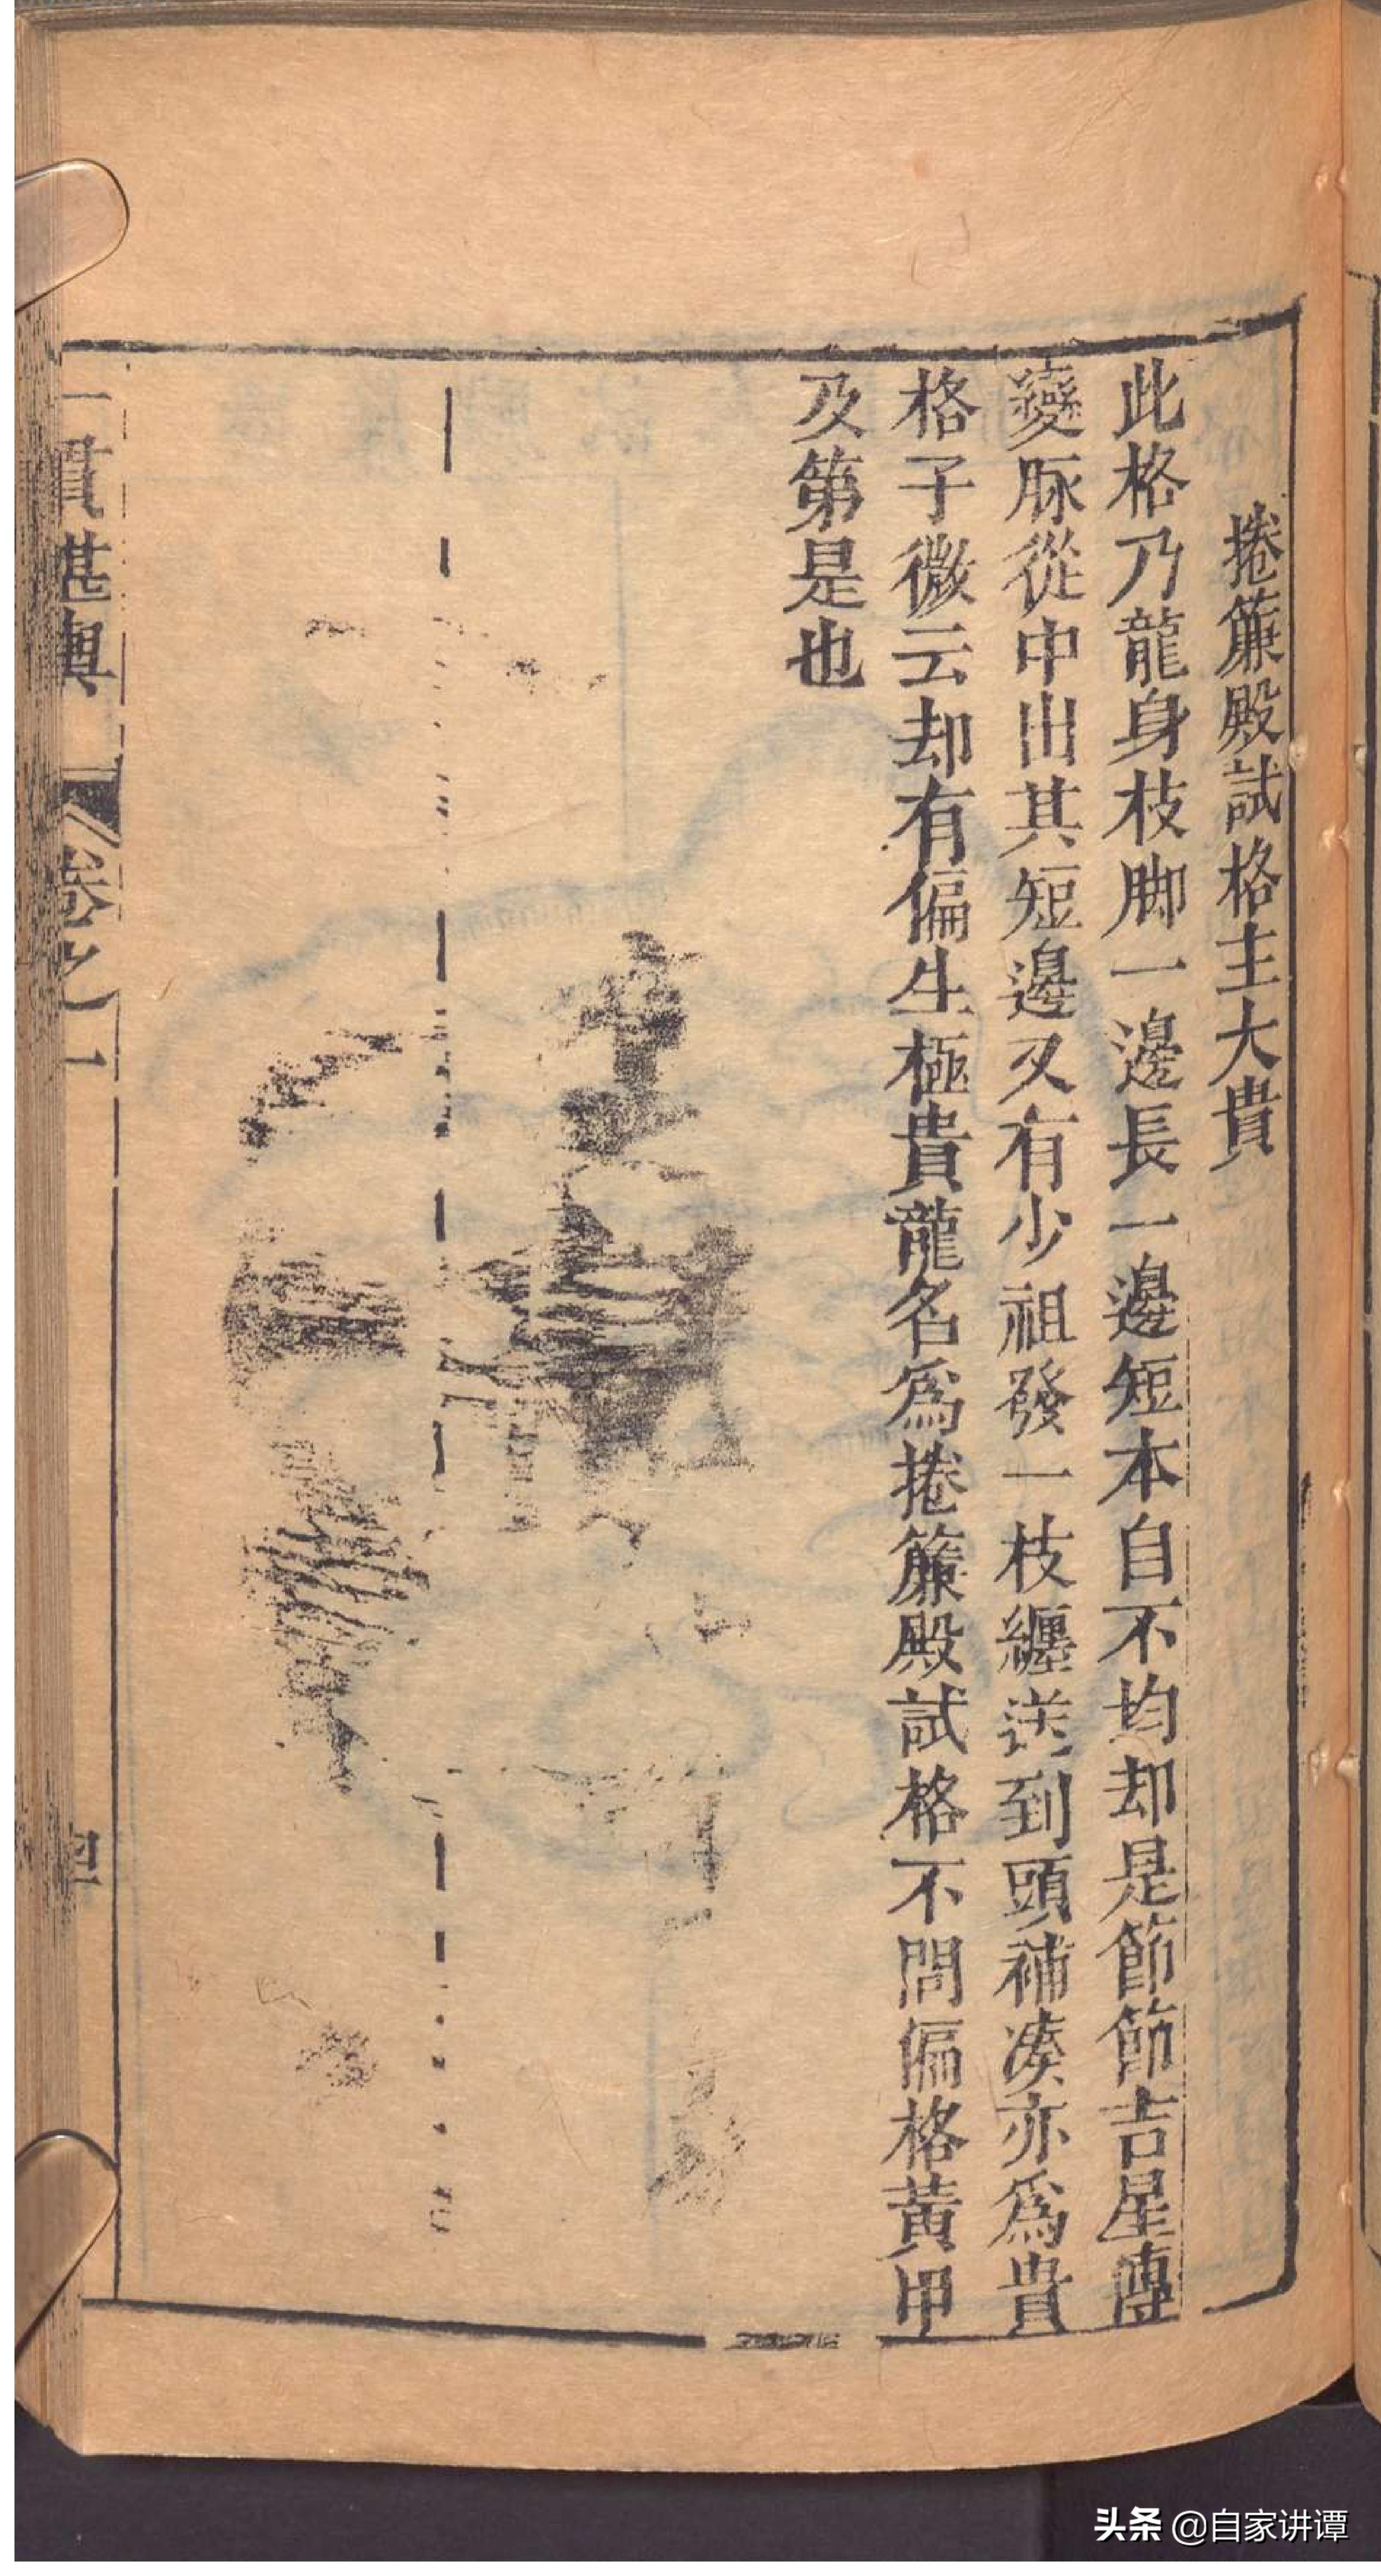 捲簾殿試格主大貴
此格乃龍身枝脚一邊長一邊短本自不均却是節節吉星傳
變脉從中出其短邊又有少祖發一枝纏送到頭補湊亦爲貴
格子微云却有偏生極貴龍名爲捲簾殿試格不問偏格黃甲
及第是也
一貫堪輿
卷之一
四
头条 @自家讲谭